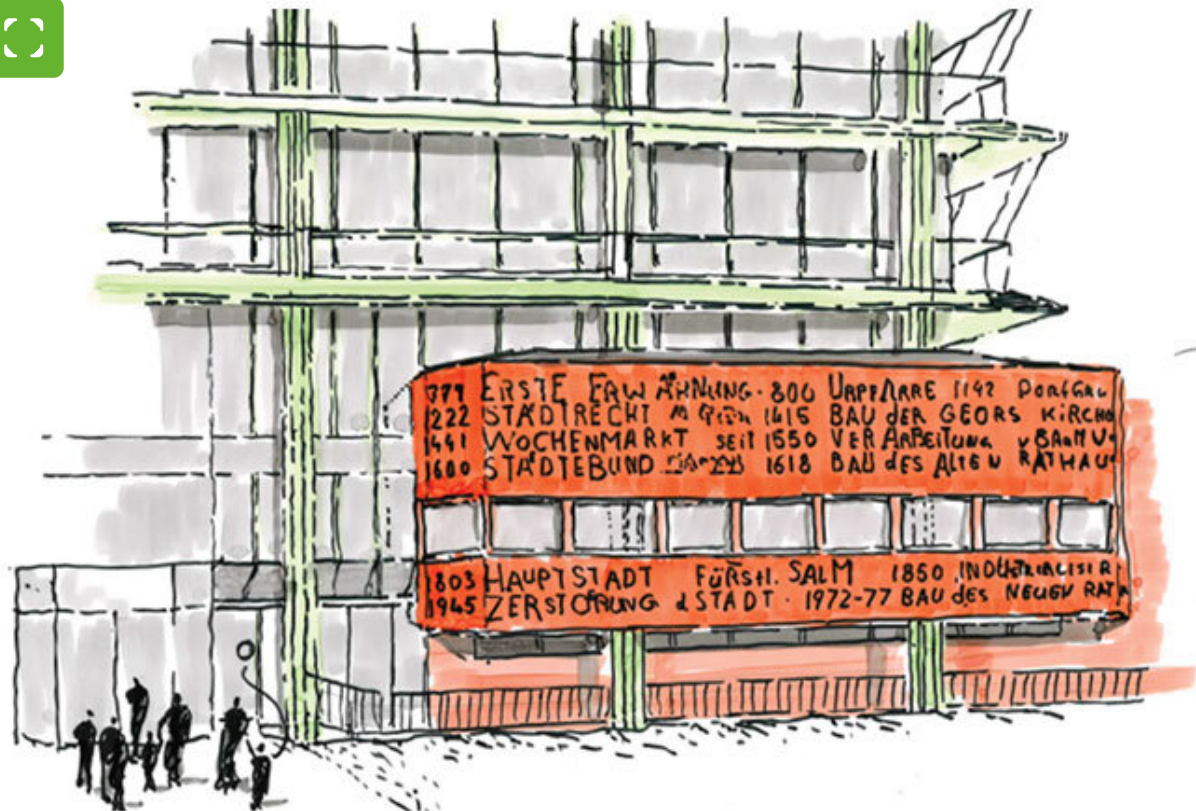 779 ERSTE ERWÄHNUNG · 800 URPFARRE 1142
1222 STADTRECHT 1415 BAU DER GEORS KIRCH
1441 WOCHENMARKT SEIT 1550 VERARBEITUNG v BAUMV
1600 STÄDTEBUND 1618 BAU DES ALTEN RATHAU
1803 HAUPTSTADT FÜRSTL. SALM 1850 INDUSTRIALISIR
1945 ZERSTÖRUNG d STADT · 1972-77 BAU DES NEUEN RAT